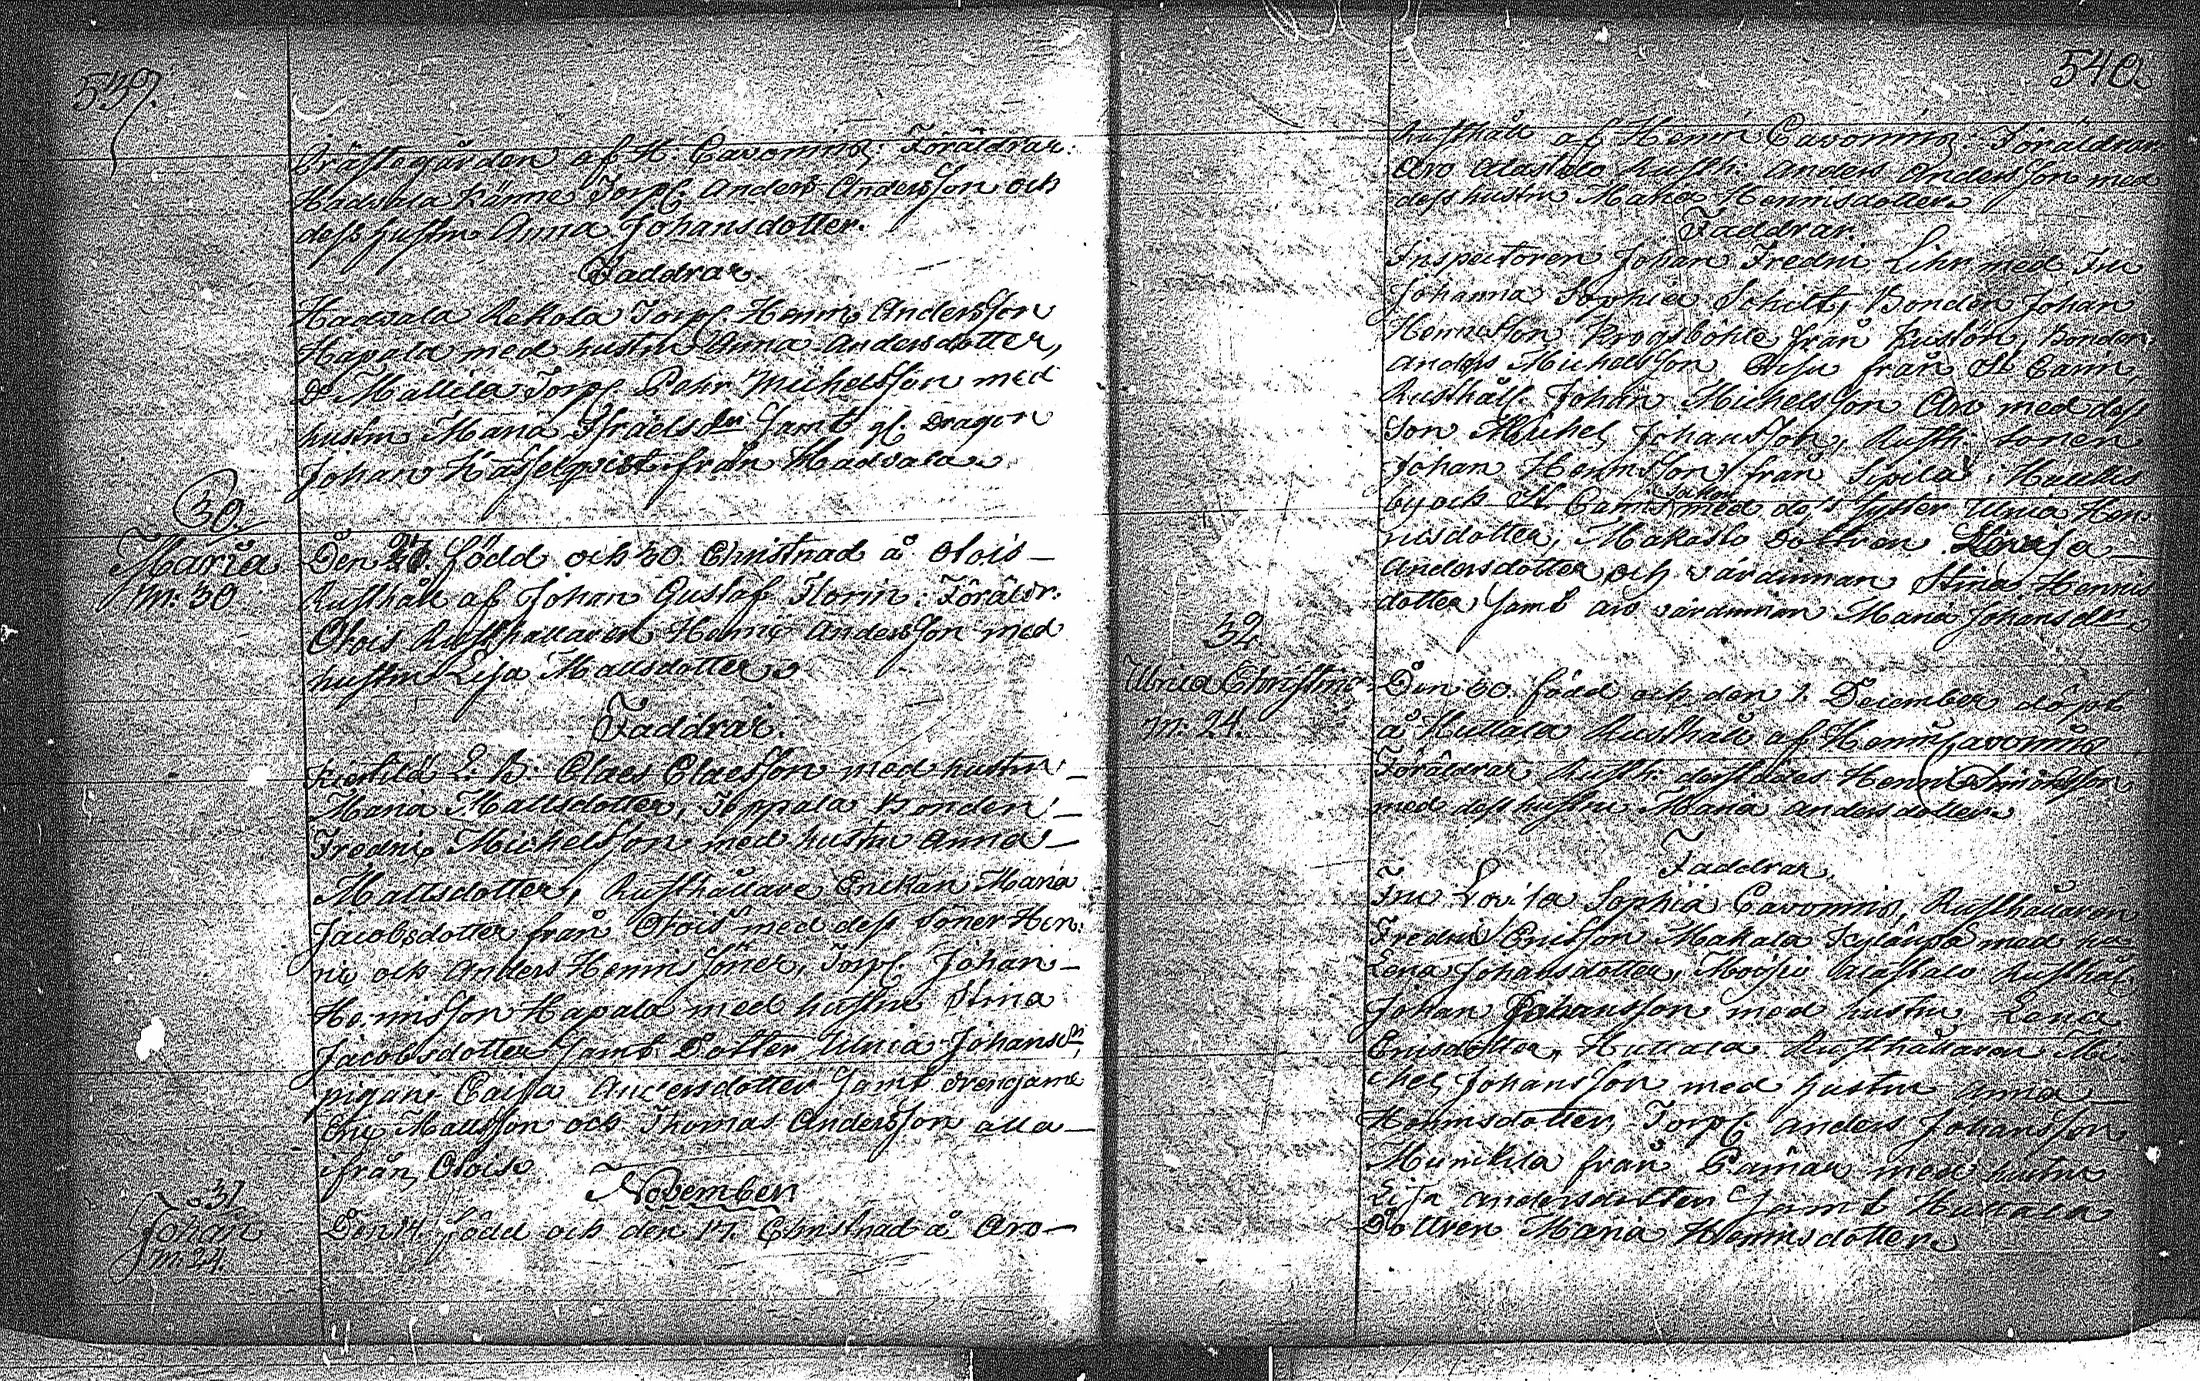 539.
Prästegården af H. Cavonius. Föräldrar:
Hadvala Torp. Anders Andersson och
dess hustru Anna Johansdotter.
Faddrar.
Hadvala Rekola Torp. Henric Andersson
Hapala med hustru Anna Andersdotter,
Do Mattila Torp. Pehr Michelsson med
hustru Maria Israelsdr samt gl. Dragon
Johan Hasselqvist från Hadvala.
30.
Maria
m: 30
Den 27. född och 30. Christnad å Olois
Rusthåll af Johan Gustaf Florin. Föräldr.
Olois Rusthållaren Henric Andersson med
hustru Lisa Mattsdotter.
Faddrar.
L. B. Claes Claesson med hustru
Maria Mattsdotter, Toppala Bonden
Fredric Michelsson med hustru Anna
Mattsdotter, Rusthållare Enckan Maria
Jacobsdotter från Olois med dess Söner Hen-
ric och Anders Henricssöner, Torp. Johan
Henricsson Hapala med hustru Stina
Jacobsdotter samt Dotter Ulrica Johansdr,
pigan Caisa Andersdotter samt drengarne
Eric Mattsson och Thomas Andersson alla
ifrån Olois.
November
31.
Johan
m: 24.
Den 14. född och den 17. Christnad å Aro
540
Rusthåll af Henric Cavonius. Föräldrar
Aro Alastalo Rusth. Anders Andersson med
dess hustru Maria Henricsdotter.
Faddrar.
Inspectoren Johan Fredric Lihr med Fru
Johanna Sophia Schilt, Bonden Johan
Henricsson Krogsböhle från Kustön, Bonden
Anders Michelsson från St Carin,
Rusthåll. Johan Michelsson Aro med dess
Son Michel Johansson, Rusth. Sonen
Johan Henricsson från Sipilä i
by och St. Carins Sochn med dess Syster Ulrica Hen-
ricsdotter, Makaslo Dottren Lovisa
Andersdotter och värdinnan Stina Henrics
dotter samt Aro värdinnan Maria Johansdr.
32.
Ulrica Christina
m: 24.
Den 30. född och den 1. December döpt
å Huttala Rusthåll af Henric Cavonius
Föräldrar Rusth. dersteädes Henric
med dess hustru Maria Andersdotter.
Faddrar.
Fru Lovisa Sophia Cavonius, Rusthållaren
Fredric Ericsson Makala med hu
Lena Johansdotter, Moisio Alastalo Rusthål.
Johan Johansson med hustru Lena
Ericsdotter, Huttala Rusthållaren Mi-
chel Johansson med hustru Anna
Henricsdotter, Torp. Anders Johansson
Munckila från Pamar med hustru
Lisa Andersdotter samt Huttala
Dottren Maria Henricsdotter.